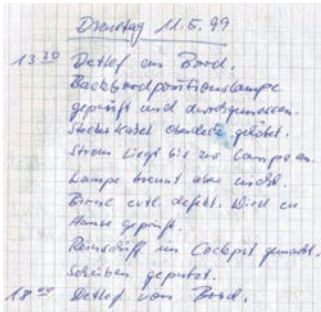 Dienstag 11.5.99
13³⁰ Detlef an Bord.
Backbordpositionslampe
geprüft und durchgemessen.
Stecker Kabel gelötet.
Strom liegt bis zur Lampe an.
Lampe brennt aber nicht.
Birne evtl defekt. Wird zu
Hause geprüft.
Reinschiff im Cockpit gemacht.
Scheiben geputzt.
18⁰⁰ Detlef von Bord.